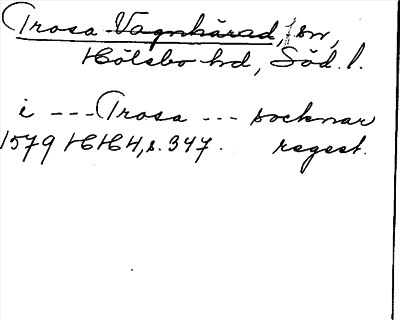 Trosa-Vagnhärad, sn,
Hölebo hd, Söd. l.
i --- Trosa --- socknar
1579 HH4, s. 347. regest.